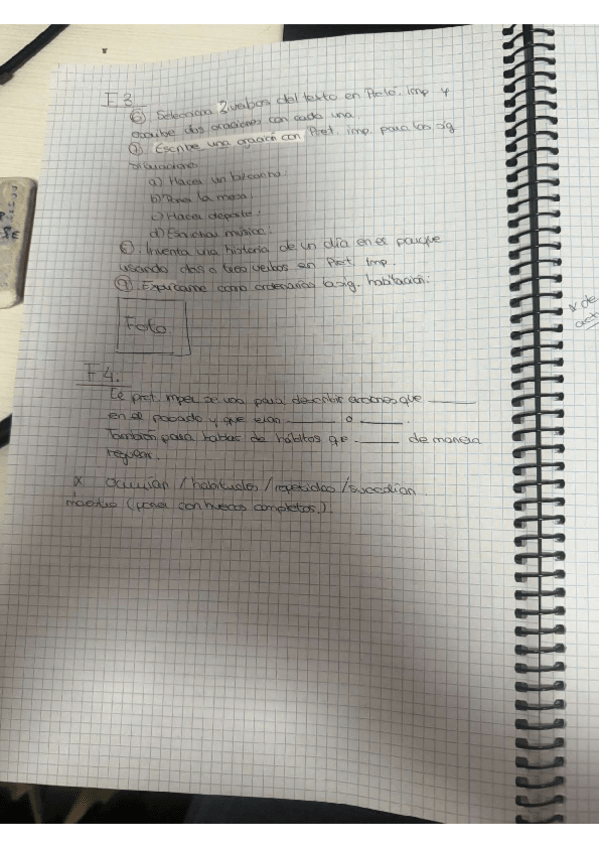 F 3
⑥ Selecciona 2 verbos del texto en Preto. imp y
escribe dos oraciones con cada una.
⑦ Escribe una oración con Pret. imp. para las sig
situaciones
a) Hacer un bizcocho.
b) Poner la mesa.
c) Hacer deporte.
d) Escuchar música.
⑧. Inventa una historia de un día en el parque
usando dos o tres verbos en Pret. Imp.
⑨. Explícame como ordenarías la sig. habitación:
Foto.
F 4.
El pret. imper. se usa para describir acciones que ____
en el pasado y que eran ____ o ____.
También para hablar de hábitos que ____ de manera
regular.
* ocurrían / habituales / repetidas / sucedían
maestro (poner con huecos completos.)
* de